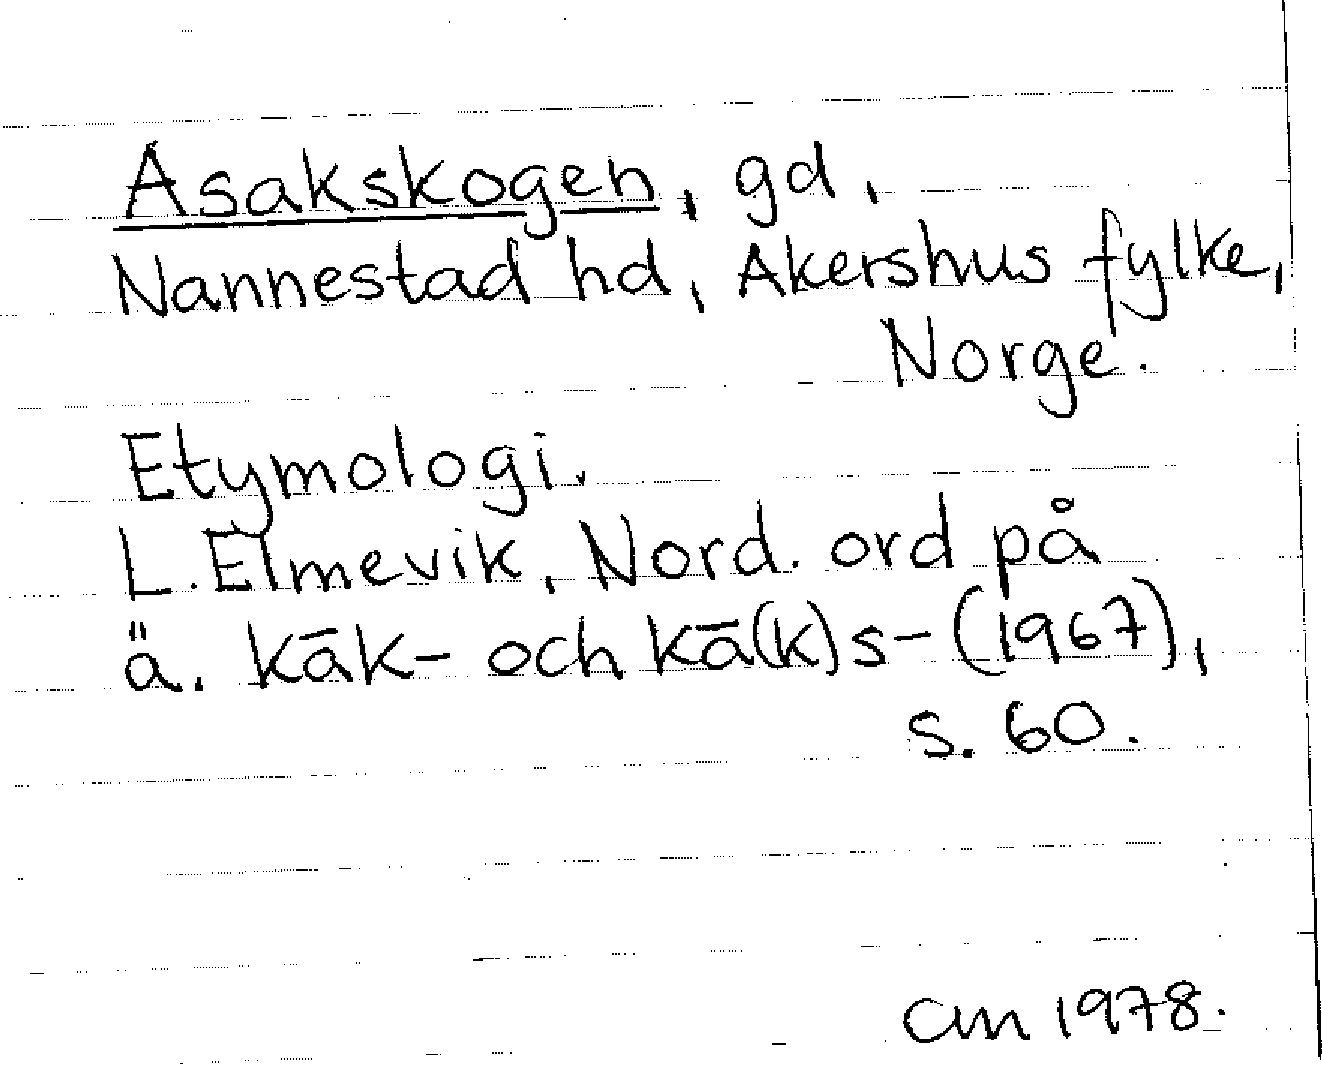 Asakskogen, gd,
Nannestad hd, Akershus fylke,
Norge.
Etymologi.
L. Elmevik, Nord. ord på
ä. kāk- och kā(k)s- (1967),
s. 60.
am 1978.